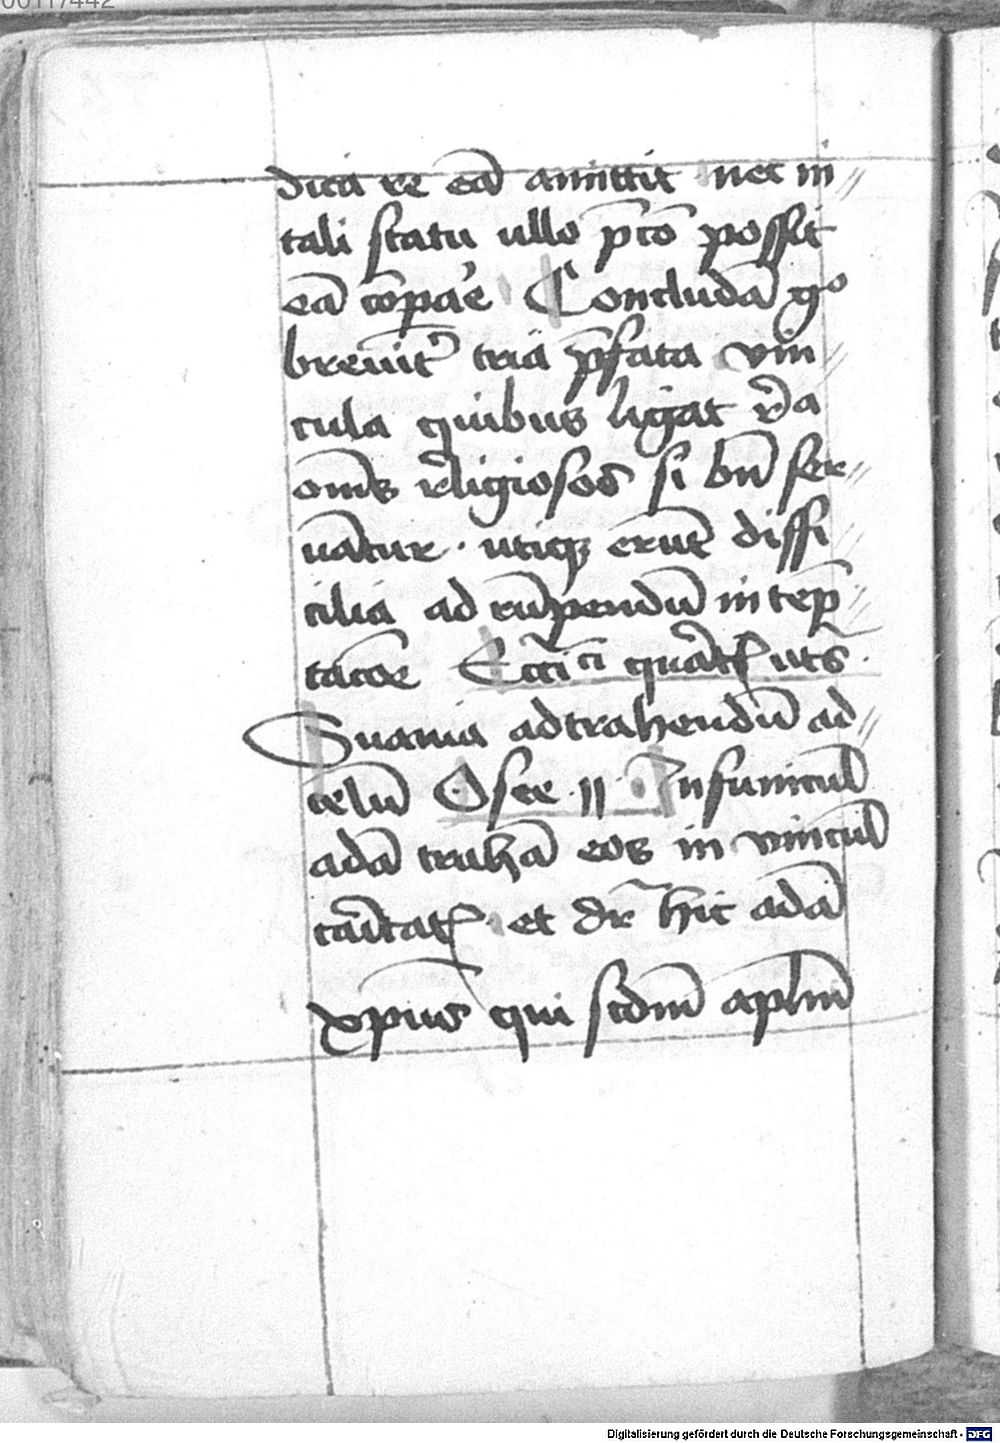 00117442
dica re eā amittit nec in//
tali statu ullo p̄cō possit
eā cōpa'e Concludā gͦ
breuit̉ tria p̄fata vin//
cula quibus ligat
om̄s religiosos si bn̄ ser//
uātur · utiqꝫ erūt diffi//
cilia ad rūpendū in tep̄//
tacōe Ecc̄ci
Suauia adtrahendū ad//
celū Osee · 11 · In funicul
adā trahā eos in vincul
caritatꝭ · et dr̄ hic adā
xpus qui scdm̄ aplm̄
Digitalisierung gefördert durch die Deutsche Forschungsgemeinschaft - DFG